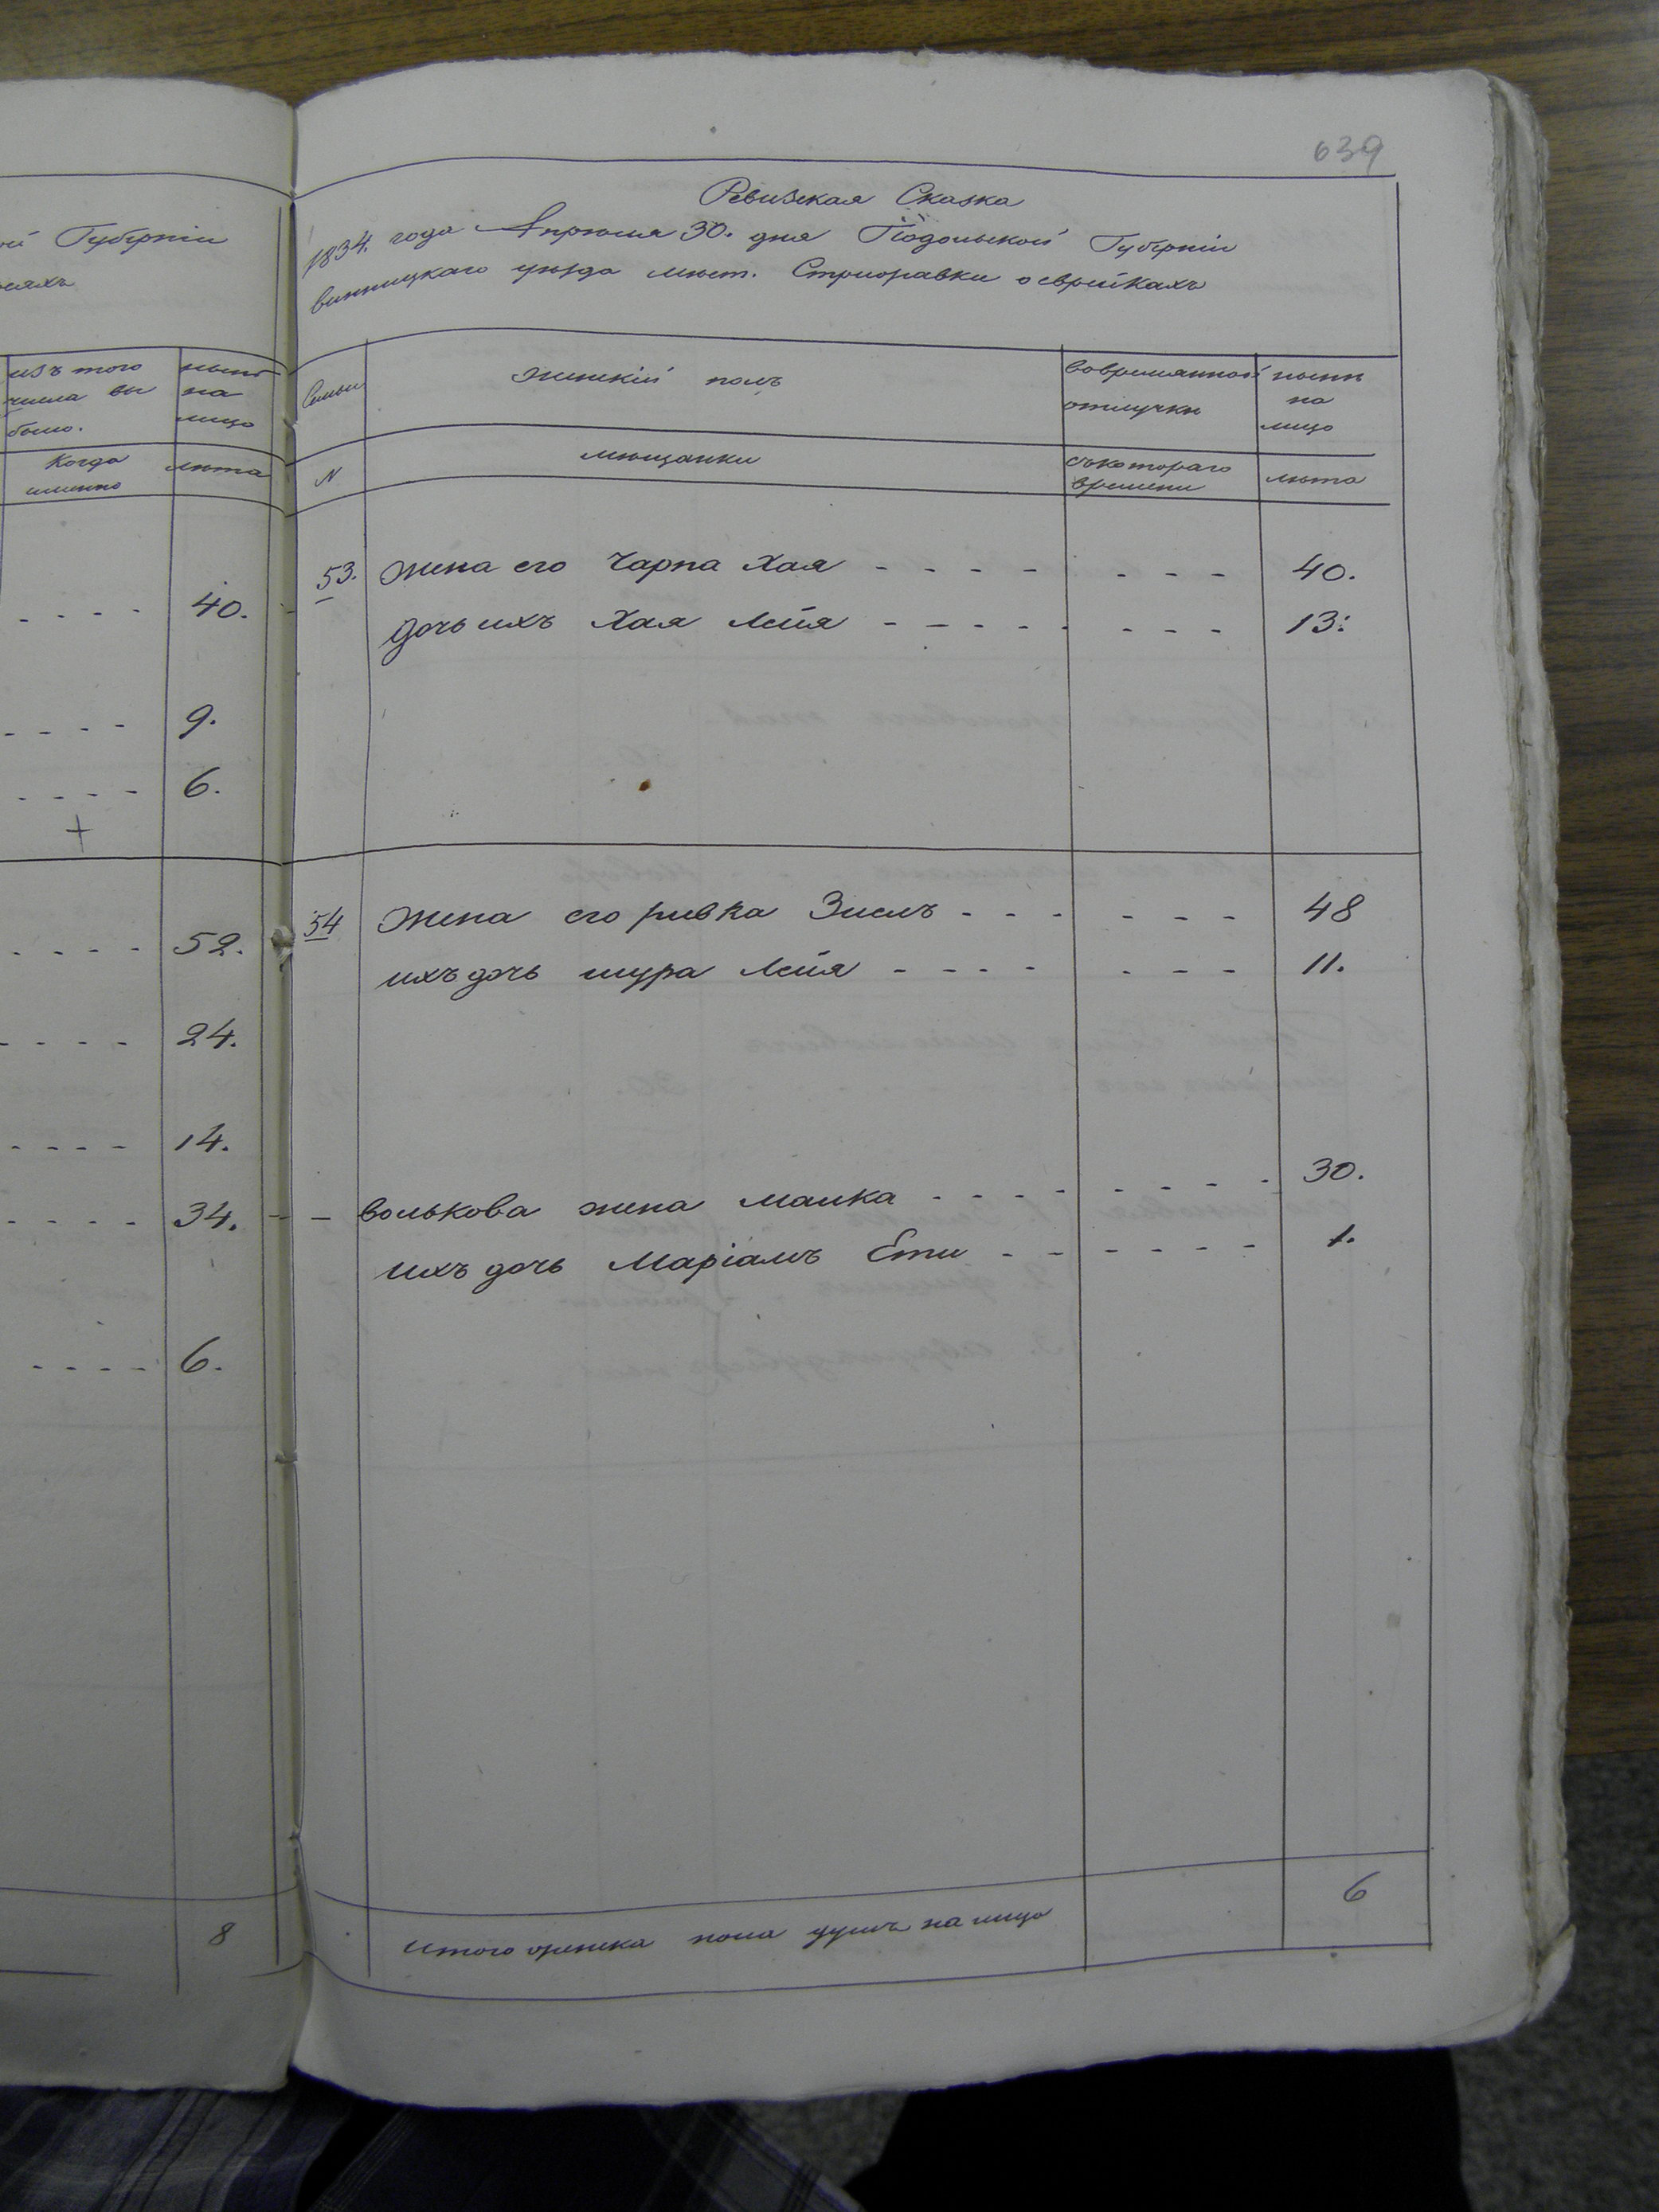 ой Губерніи
еяхъ
изъ того
числа вы
было.
ныне
на
лицо
Когда
именно
лѣта
40.
9.
6.
+
52.
24.
14.
34.
6.
8
639
Ревизская Сказка
1834. года Апреля 30. дня Подольской Губерніи
винницкаго уѣзда мѣст. Стрижавки о еврейкахъ
Семьи
женскій полъ
вовремянной
отлучкѣ
нынѣ
на
лицо
N
мѣщанки
съкотораго
времени
лѣта
53. жена его Чарна Хая - - - - - - - 40.
дочь ихъ Хая Лейя - - - - - - - - 13.
54 Жена его ривка Зислъ - - - - - - 48
ихъ дочь шура Лейя - - - - - - - 11.
- волькова жена малка - - - - - - - - 30.
ихъ дочь Маріамъ Ети - - - - - - 1.
Итого женска пола душъ на лицо 6